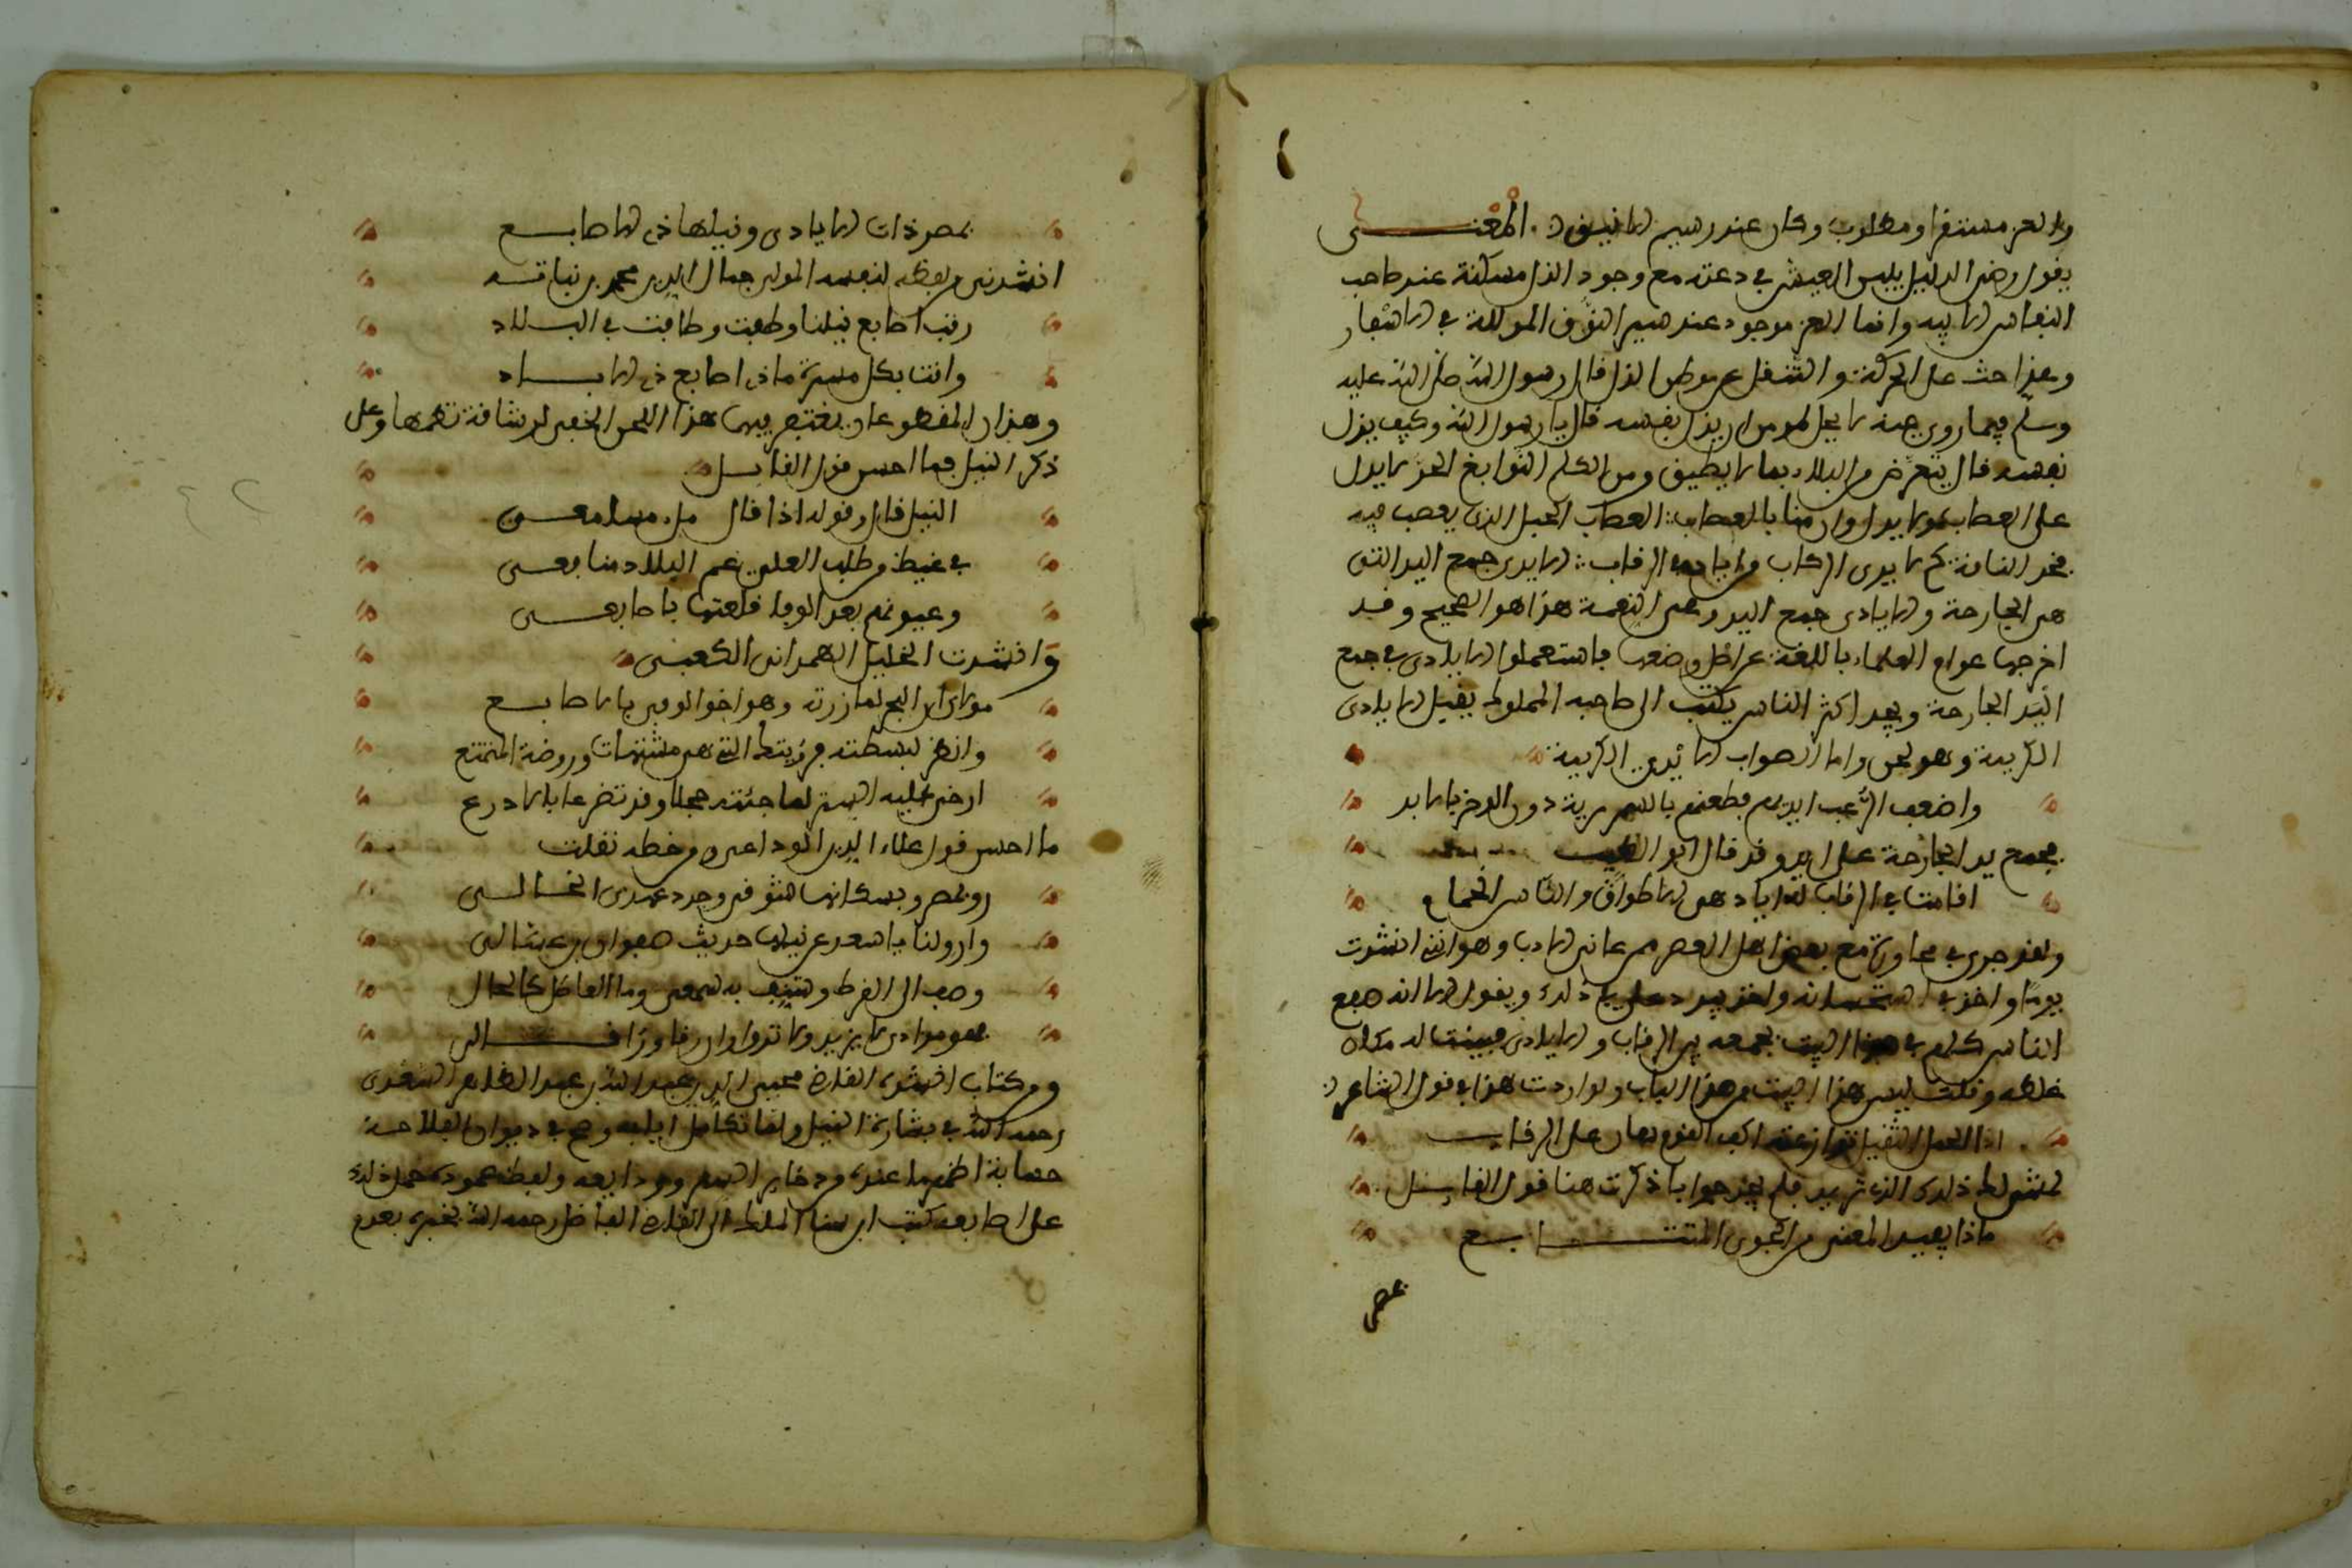 والعز مستقرا ومطلوب وكان عند رسيم الاينق. المعنى
يقول رضى الذليل بلين العيش في دعته مع وجود الذل مسكنة عند صاحب
النفس الابيه وانما العز موجود عند سير النوق المذللة في الاسفار
وهذا حث على الحركة والتنقل عن موطن الذل قال رسول الله صلى الله عليه
وسلم فيما روي عنه لا يحل لمومن ان يذل نفسه قال يا رسول الله وكيف يذل
نفسه قال يتعرض من البلاء بما لا يطيق ومن الكلم النوابغ الحر لا يدل
على العصاب
فخد الناقة كي لا يدي الركاب من ايادي الرقاب الايدي جمع اليد التي
هي الجارحة والايادي جمع اليد وهي النعمة هذا هو الصحيح وقد
اخرجها عوام العلماء باللغة عن اصل وضعها فاستعملوا الايادي في جمع
اليد الجارحة وتجد اكثر الناس يكتب الى صاحبه المملوك يقبل الايادي
الكريمة وهو لحن وانما الصواب الايدي الكريمة
واضعف الرعب ايديهم فطعنهم بالسمهرية دون الوخز بالابر
فجمع يد الجارحة على ايد وقد قال ابو الطيب
اقامت في الرقاب له اياد هي الاطواق والناس الحمام
ولقد جرى في محاورة مع بعض اهل العصر ممن عانى الادب وهو انني انشدت
يوما واخذ في استحسانه واخذ يردد على ذلك ويقول الا انه صفع
الناس كلهم في هذا البيت بجمعه بين الرقاب والايادي فبينت له مكان
غلطه وقلت ليس هذا البيت من هذا الباب ولو اردت هذا في قول الشاعر
اذا الحمل الثقيل توازعته اكف القوم هان على الرقاب
لمشى لك ذلك الذي تريد فلم يحر جوابا ذكرت هنا قول القايل
ماذا يفيد المعنى من الجوى المتتابع
بمصر
بمصر ذات الايادي ونيلها ذي الاصابع
انشدني من لفظه لنفسه المولى جمال الدين محمد بن نباتة
رقت اصابع نيلنا وطفت وطافت في البلاد
واتت بكل مسرة ماذي اصابع ذي اياد
وهذان المقطوعان يغتفر فيهما هذا اللحن الخفي لرشاقة نظمهما وعلى
ذكر النيل فما احسن قول القايل
النيل قال وقوله اذ قال ملء مسامعي
في غيظ من طلب العلى عم البلاد منافعي
وعيونهم بعد الوفا قلعتها باصابعي
وانشدت الخليل الهمداني الكعبى
مولاي ان البحر لما زرته وهو اخو الوفى بالاصابع
وانظر لبسطته فرؤيتك التي هي مشتهاه وروضة المتمتع
ارخى عليه الستر لما جئته خجلا وقد تضرعا بالاذرع
ما احسن قول علاء الدين الوداعي ومن خطه نقلت
رو بمصر وبسكانها شوقي وجدد عهدي الخالي
وارو لنا يا سعد عن نيلها حديث صفوان بن عسال
وصف الى القرط وشنف به سمعي وما العاطل كالحالي
فهو مرادي لا يزيد ولا ثورا وان رقا وراقا لي
ومن كتاب انشاه القاضي محيي الدين عبد الله بن عبد الظاهر السعدي
رحمه الله في بشارة النيل ولما تكامل ايابه وصح في ديوان الفلاحة
حسابه اظهر ما عنده من ذخاير اليسر وودايعه ولفظ عموده حمل ذلك
على اصابعه كتب ابن سنا الملك الى القاضي الفاضل رحمه الله يخبره بعدم